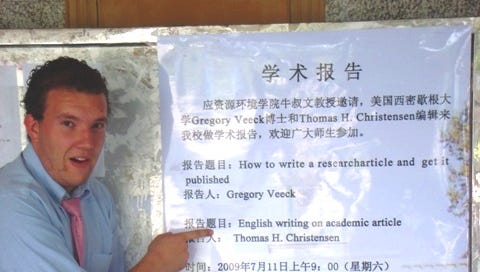 学术报告
应资源环境学院牛叔文教授邀请，美国西密歇根大
学Gregory Veeck博士和Thomas H. Christensen编辑来
我校做学术报告，欢迎广大师生参加。
报告题目：How to write a researcharticle and get it
published
报告人：Gregory Veeck
报告题目：English writing on academic article
报告人： Thomas H. Christensen
时间：2009年7月11日上午9：00（星期六）